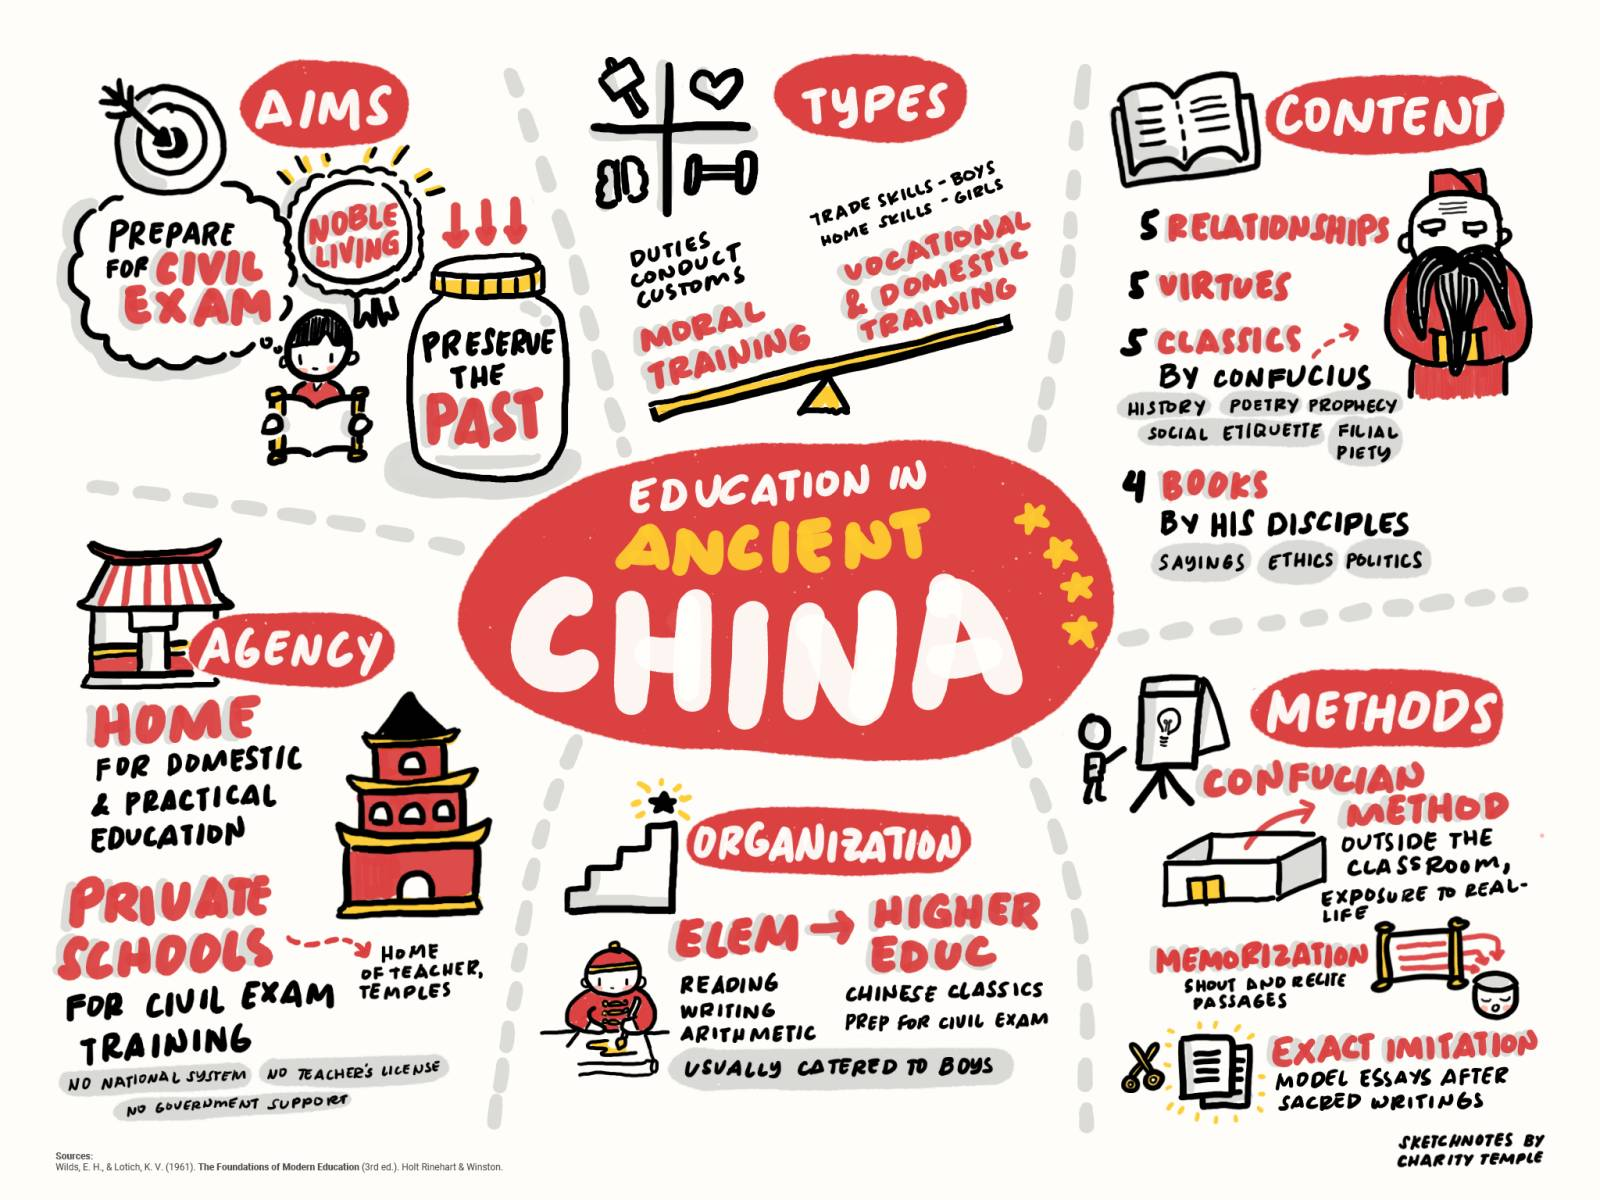 AIMS
PREPARE
FOR CIVIL
EXAM
NOBLE
LIVING
PRESERVE
THE
PAST
TYPES
DUTIES
CONDUCT
CUSTOMS
MORAL
TRAINING
TRADE SKILLS - BOYS
HOME SKILLS - GIRLS
VOCATIONAL
& DOMESTIC
TRAINING
CONTENT
5 RELATIONSHIPS
5 VIRTUES
5 CLASSICS
BY CONFUCIUS
HISTORY POETRY PROPHECY
SOCIAL ETIQUETTE FILIAL
PIETY
4 BOOKS
BY HIS DISCIPLES
SAYINGS ETHICS POLITICS
EDUCATION IN
ANCIENT
CHINA
AGENCY
HOME
FOR DOMESTIC
& PRACTICAL
EDUCATION
PRIVATE
SCHOOLS
HOME
OF TEACHER,
TEMPLES
FOR CIVIL EXAM
TRAINING
NO NATIONAL SYSTEM NO TEACHER'S LICENSE
NO GOVERNMENT SUPPORT
ORGANIZATION
ELEM → HIGHER
EDUC
READING
WRITING
ARITHMETIC
CHINESE CLASSICS
PREP FOR CIVIL EXAM
USUALLY CATERED TO BOYS
METHODS
CONFUCIAN
METHOD
OUTSIDE THE
CLASSROOM,
EXPOSURE TO REAL-
LIFE
MEMORIZATION
SHOUT AND RECITE
PASSAGES
EXACT IMITATION
MODEL ESSAYS AFTER
SACRED WRITINGS
SKETCHNOTES BY
CHARITY TEMPLE
Sources:
Wilds, E. H., & Lotich, K. V. (1961). The Foundations of Modern Education (3rd ed.). Holt Rinehart & Winston.